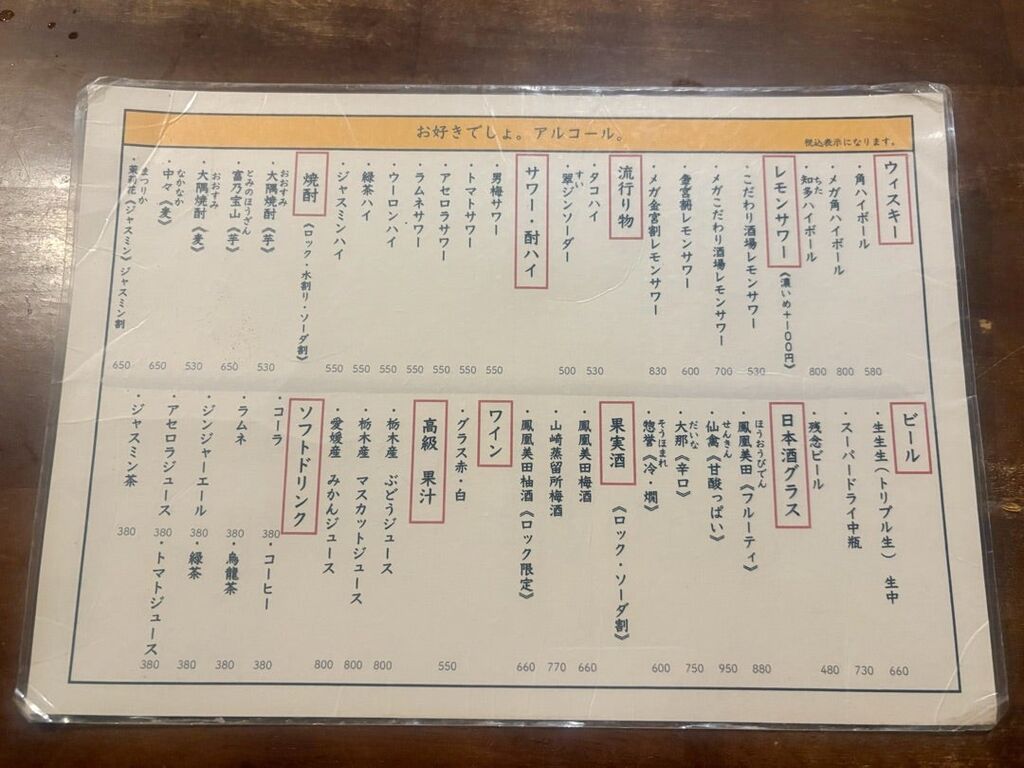 お好きでしょ。アルコール。
税込表示になります。
ウィスキー
・角ハイボール 580
・メガ角ハイボール 800
・知多ハイボール 800
ちた
レモンサワー
《濃いめ+一〇〇円》
・こだわり酒場レモンサワー 530
・メガこだわり酒場レモンサワー 700
・金宮割レモンサワー 600
・メガ金宮割レモンサワー 830
流行り物
・タコハイ 530
・翠ジンソーダー 500
すい
サワー・酎ハイ
・男梅サワー 550
・トマトサワー 550
・アセロラサワー 550
・ラムネサワー 550
・ウーロンハイ 550
・緑茶ハイ 550
・ジャスミンハイ 550
焼酎
《ロック・水割り・ソーダ割》
・大隅焼酎《芋》 530
おおすみ
・富乃宝山《芋》 650
とみのほうざん
・大隅焼酎《麦》 530
おおすみ
・中々《麦》 650
なかなか
・茉莉花《ジャスミン》ジャスミン割 650
まつりか
ビール
・生生生(トリプル生) 生中 660
・スーパードライ中瓶 730
・残念ビール 480
日本酒グラス
・鳳凰美田《フルーティ》 880
ほうおうびでん
・仙禽《甘酸っぱい》 950
せんきん
・大那《辛口》 750
だいな
・惣誉《冷・燗》 600
そうほまれ
果実酒
《ロック・ソーダ割》
・鳳凰美田梅酒 660
・山崎蒸留所梅酒 770
・鳳凰美田柚酒《ロック限定》 660
ワイン
・グラス赤・白 550
高級 果汁
・栃木産 ぶどうジュース 800
・栃木産 マスカットジュース 800
・愛媛産 みかんジュース 800
ソフトドリンク
・コーラ 380
・コーヒー 380
・ラムネ 380
・烏龍茶 380
・ジンジャーエール 380
・緑茶 380
・アセロラジュース 380
・トマトジュース 380
・ジャスミン茶 380